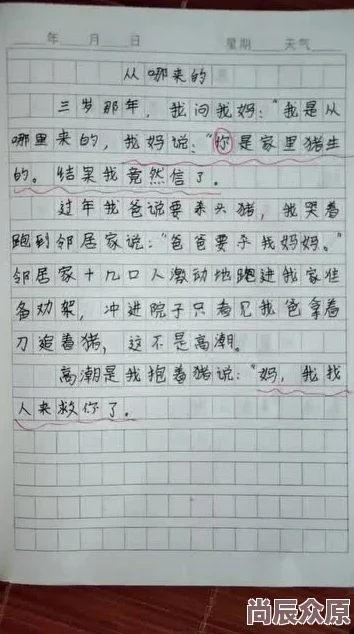 年 月 日 星期 天气
从哪来的
三岁那年，我问我妈："我是从
哪里来的，我妈说："你是家里猪生
的。结果我竟然信了。
过年我爸说要杀头猪，我哭着
跑到邻居家说："爸爸要杀我妈妈。"
邻居家十几口人激动地跑进我家准
备劝架，冲进院子只看见我爸拿着
刀追着猪，这不是高潮。
高潮是我抱着猪说："妈，我找
人来救你了。
尚辰众原